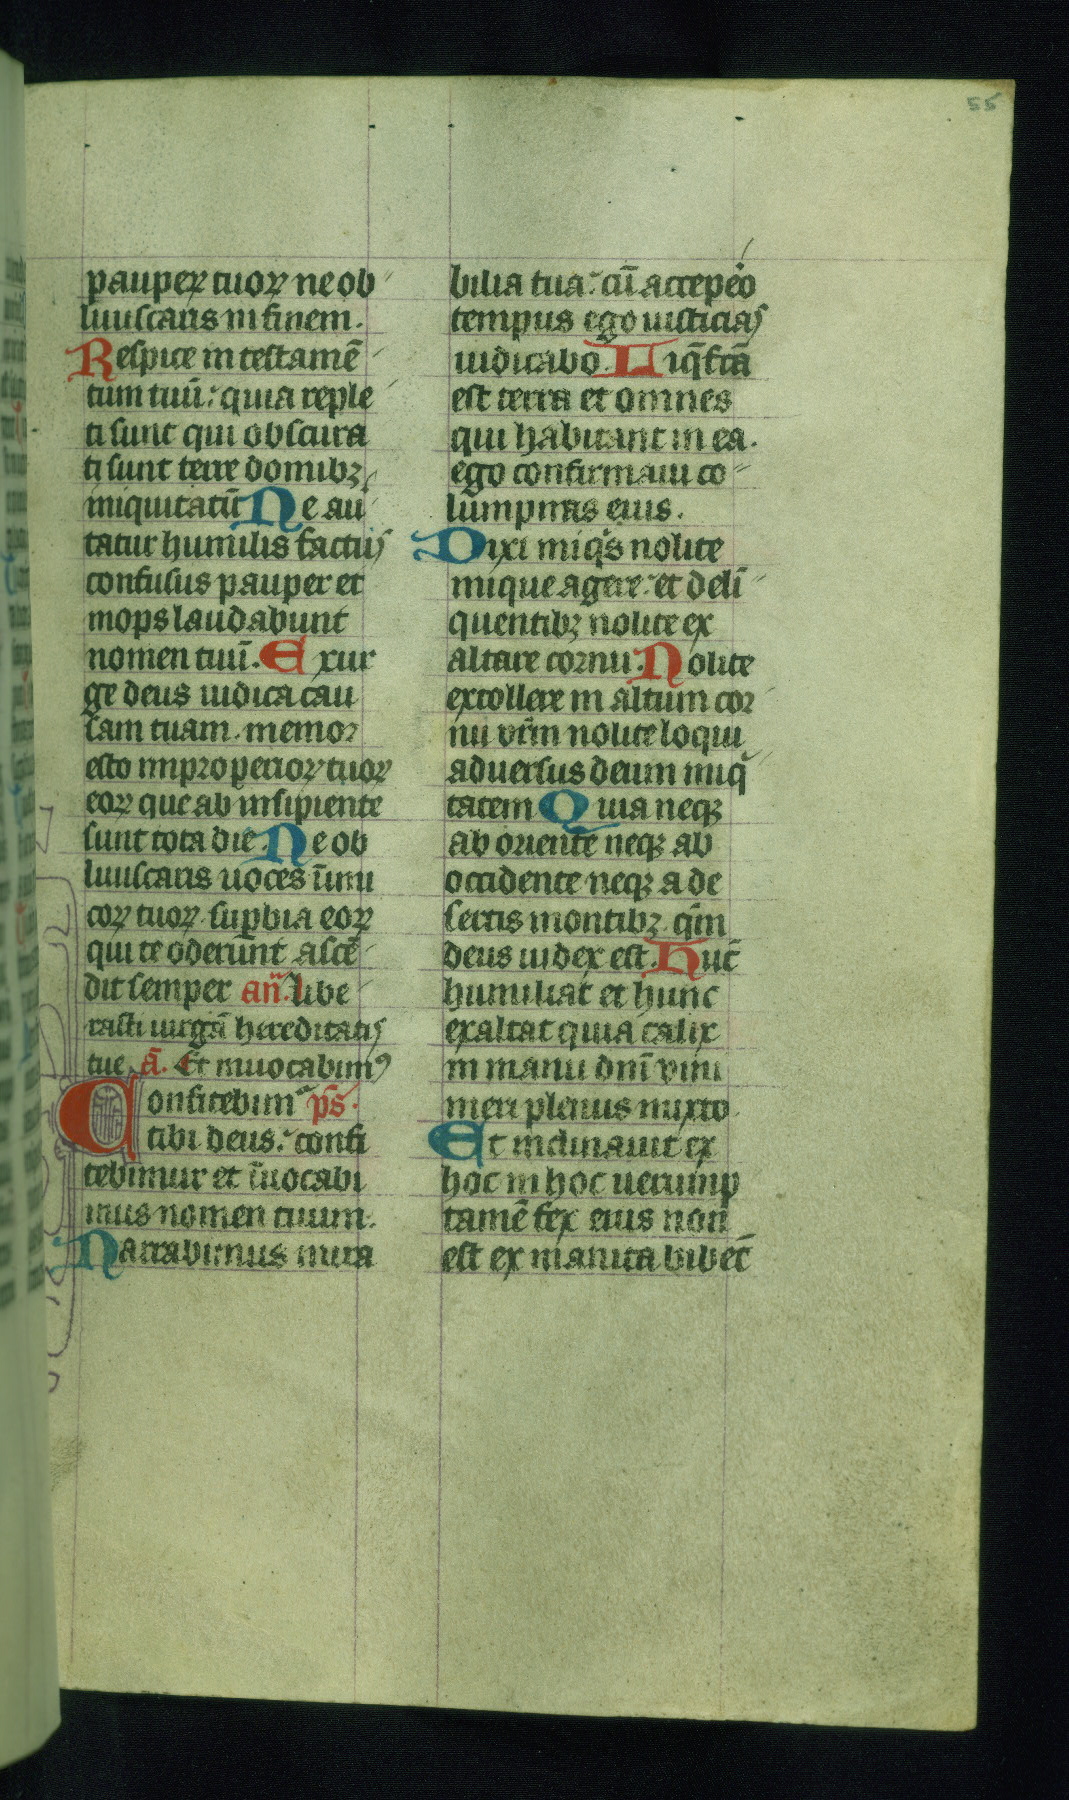 55
pauperꝝ tuoꝝ ne ob
liuiscaris in finem.
Respice in testamē
tum tuū: quia reple
ti sunt qui obscura
ti sunt terre domibꝫ
iniquitatū Ne auͥ
tatur humilis factus
confusus pauper et
inops laudabunt
nomen tuū. Exur
ge deus iudica cau
sam tuam. memor
esto improperioꝝ tuoꝝ
eoꝝ que ab insipiente
sunt tota die. Ne ob
liuiscaris uoces inimi
coꝝ tuoꝝ. suꝑbia eoꝝ
qui te oderunt ascē
dit semper an̄. libe
rasti uirgā hereditatis
tue. a̅. Et inuocabimꝰ
Confitebimʳ p̄s.
tibi deus: confi
tebimur et īuocabi
mus nomen tuum.
Narrabimus mira
bilia tua: cū accepeͦ
tempus ego iusticias
iudicabo. Liq̄fc̄a
est terra et omnes
qui habitant in ea.
ego confirmaui co
lumpnas eius.
Dixi iniqͥs nolite
inique agere: et deli
quentibꝫ nolite ex
altare cornu: Nolite
extollere in altum cor
nu vr̄m nolite loqui
aduersus deum iniqͥ
tatem Quia neqꝫ
ab oriente neqꝫ ab
occidente neqꝫ a de
sertis montibꝫ. qm̄
deus iudex est. Hūc
humiliat et hunc
exaltat quia calix
in manu dn̄i vini
meri plenus mixto
Et inclinauit ex
hoc in hoc uerump
tamē fex eius non
est exmanita bibēt